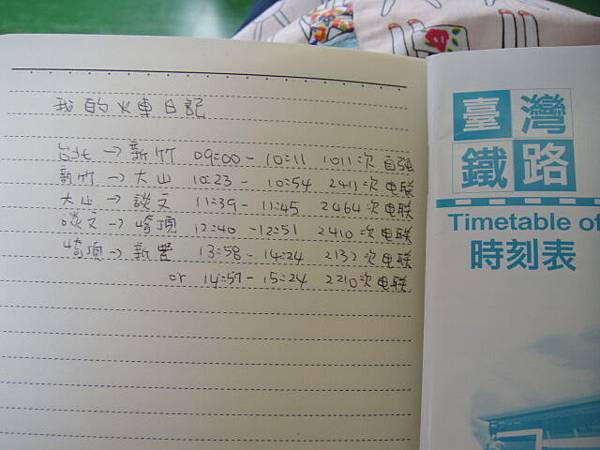 我的火車日記
台北 → 新竹 09:00 - 10:11 1011次 自強
新竹 → 大山 10:23 - 10:54 2411次 电联
大山 → 談文 11:39 - 11:45 2464次 电联
談文 → 崎頂 12:40 - 12:51 2410次 电联
崎頂 → 新豐 13:58 - 14:24 2132次 电联
or 14:57 - 15:24 2210次 电联
臺灣
鐵路
Timetable of
時刻表